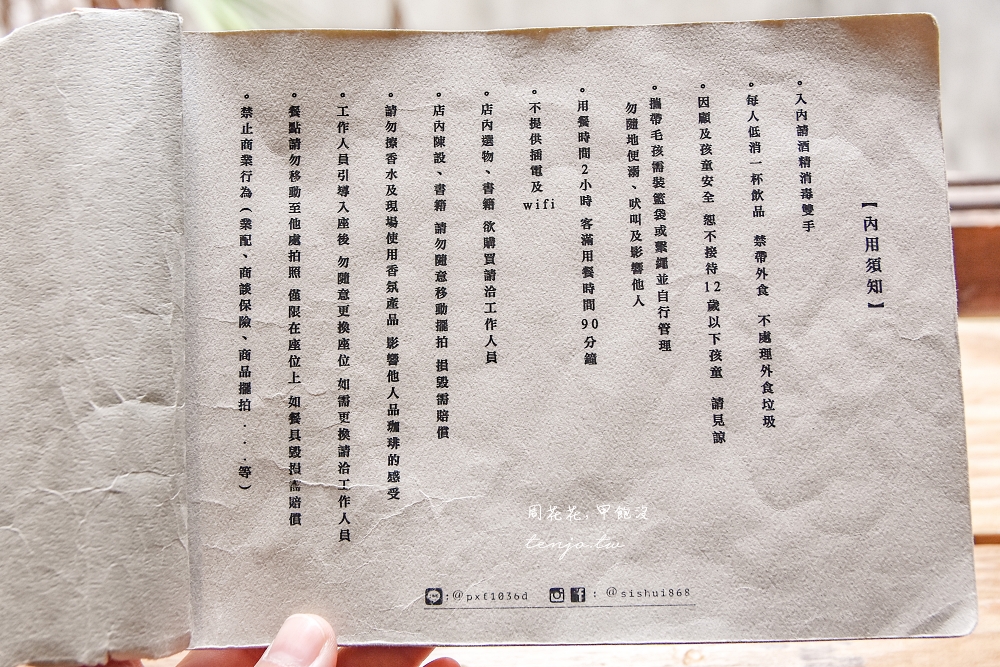 【內用須知】
。入內請酒精消毒雙手
。每人低消一杯飲品 禁帶外食 不處理外食垃圾
。因顧及孩童安全 恕不接待12歲以下孩童 請見諒
。攜帶毛孩需裝籃袋或繫繩並自行管理
勿隨地便溺、吠叫及影響他人
。用餐時間2小時 客滿用餐時間90分鐘
。不提供插電及wifi
。店內選物、書籍 欲購買請洽工作人員
。店內陳設、書籍 請勿隨意移動擺拍 損毀需賠償
。請勿擦香水及現場使用香氛產品 影響他人品珈琲的感受
。工作人員引導入座後 勿隨意更換座位 如需更換請洽工作人員
。餐點請勿移動至他處拍照 僅限在座位上 如餐具毀損需賠償
。禁止商業行為(業配、商談保險、商品擺拍....等)
周花花,甲飽沒
tenjo.tw
:@pxf1036d : @sishui868